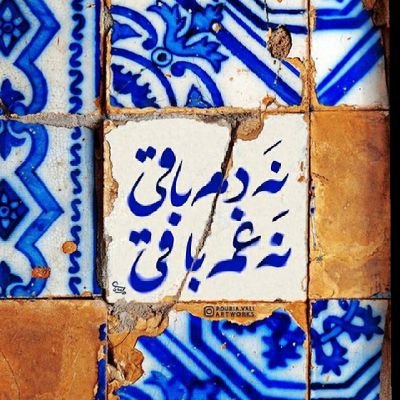 نَه دم باقی
نَه غم باقی
POURIA.VALI
ARTWORKS